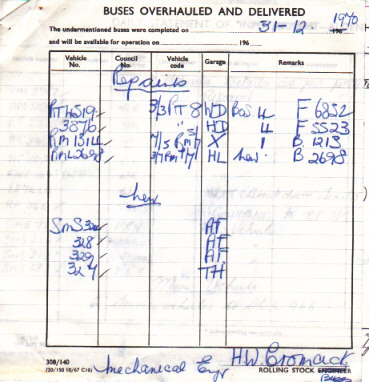 BUSES OVERHAULED AND DELIVERED
The undermentioned buses were completed on 31-12 1970 196
and will be available for operation on 196
Vehicle No. Council No. Vehicle code Garage Remarks
Repaints
RT 4519 3/3 RT 8 WD Box 4 F 6852
3876 " " HD 4 F 5523
RM 1314 7/5 RM 5/7 X 1 B 1213
RML 2698 HL new B 2698
New
SMS 324 AF
328 AF
329 AF
327 TH
308/140
(20/150 10/67 C16)
Mechanical Engr H.W. Cromack
ROLLING STOCK ENGINEER